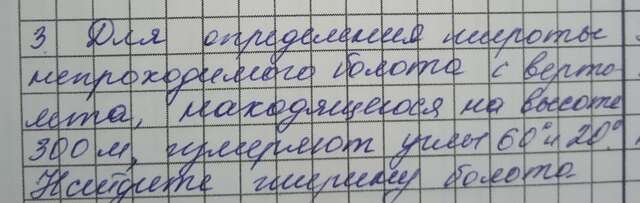 3. Для определения широты
непроходимого болота с верто
лета, находящегося на высоте
300 м, измеряют углы 60° и 20°.
Найдите ширину болота